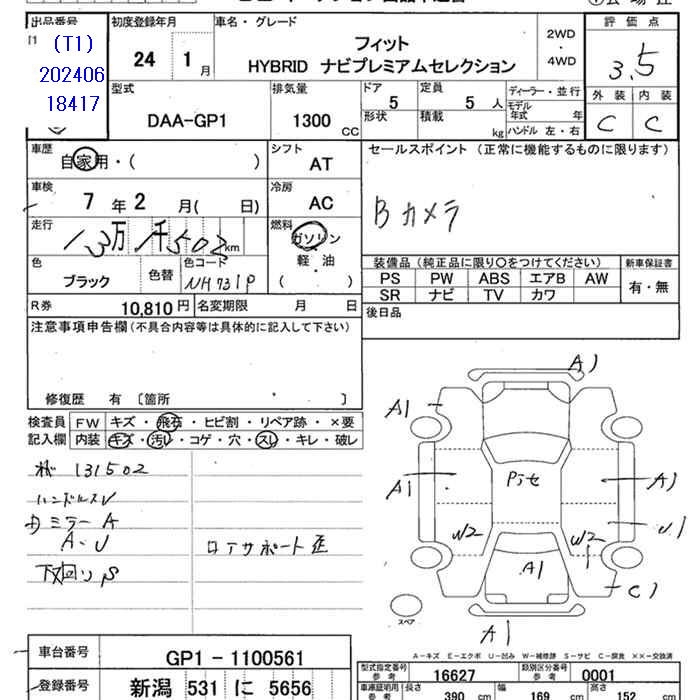 出品番号
(T1)
202406
18417
初度登録年月
24 1 月
車名・グレード
フィット
HYBRID ナビプレミアムセレクション
2WD
・
4WD
評価点
3.5
外装 内装
C C
型式
DAA-GP1
排気量
1300 CC
ドア
5
定員
5 人
形状
積載
kg
ディーラー・並行
モデル
年式 年
ハンドル 左・右
車歴
自家用・( )
シフト
AT
セールスポイント (正常に機能するものに限ります)
Bカメラ
車検
7 年 2 月( 日)
冷房
AC
走行
13万1千502km
燃料
ガソリン
軽・油
( )
色
ブラック
色替
色コード
NH731P
装備品 (純正品に限り〇をつけてください)
PS PW ABS エアB AW
SR ナビ TV カワ
新車保証書
有・無
R券 10,810 円
名変期限 月 日
後日品
注意事項申告欄 (不具合内容等は具体的に記入して下さい)
修復歴 有 〔箇所 〕
検査員
記入欄
FW キズ・飛石・ヒビ割・リペア跡・×要
内装 キズ・汚レ・コゲ・穴・スレ・キレ・破レ
131502
ハンドルスレ
ミラーA
A・U
下回りS
ロアサポート歪
A1
A1
A1
A1
U1
W2
W2
A1
C1
A1
スペア
A-キズ E-エクボ U-凹み W-補修跡 S-サビ C-腐食 ××-交換済
車台番号
GP1-1100561
登録番号
新潟 531 に 5656
型式指定番号
参考
16627
類別区分番号
参考
0001
車庫証明用
参考
長さ 390 cm
幅 169 cm
高さ 152 cm